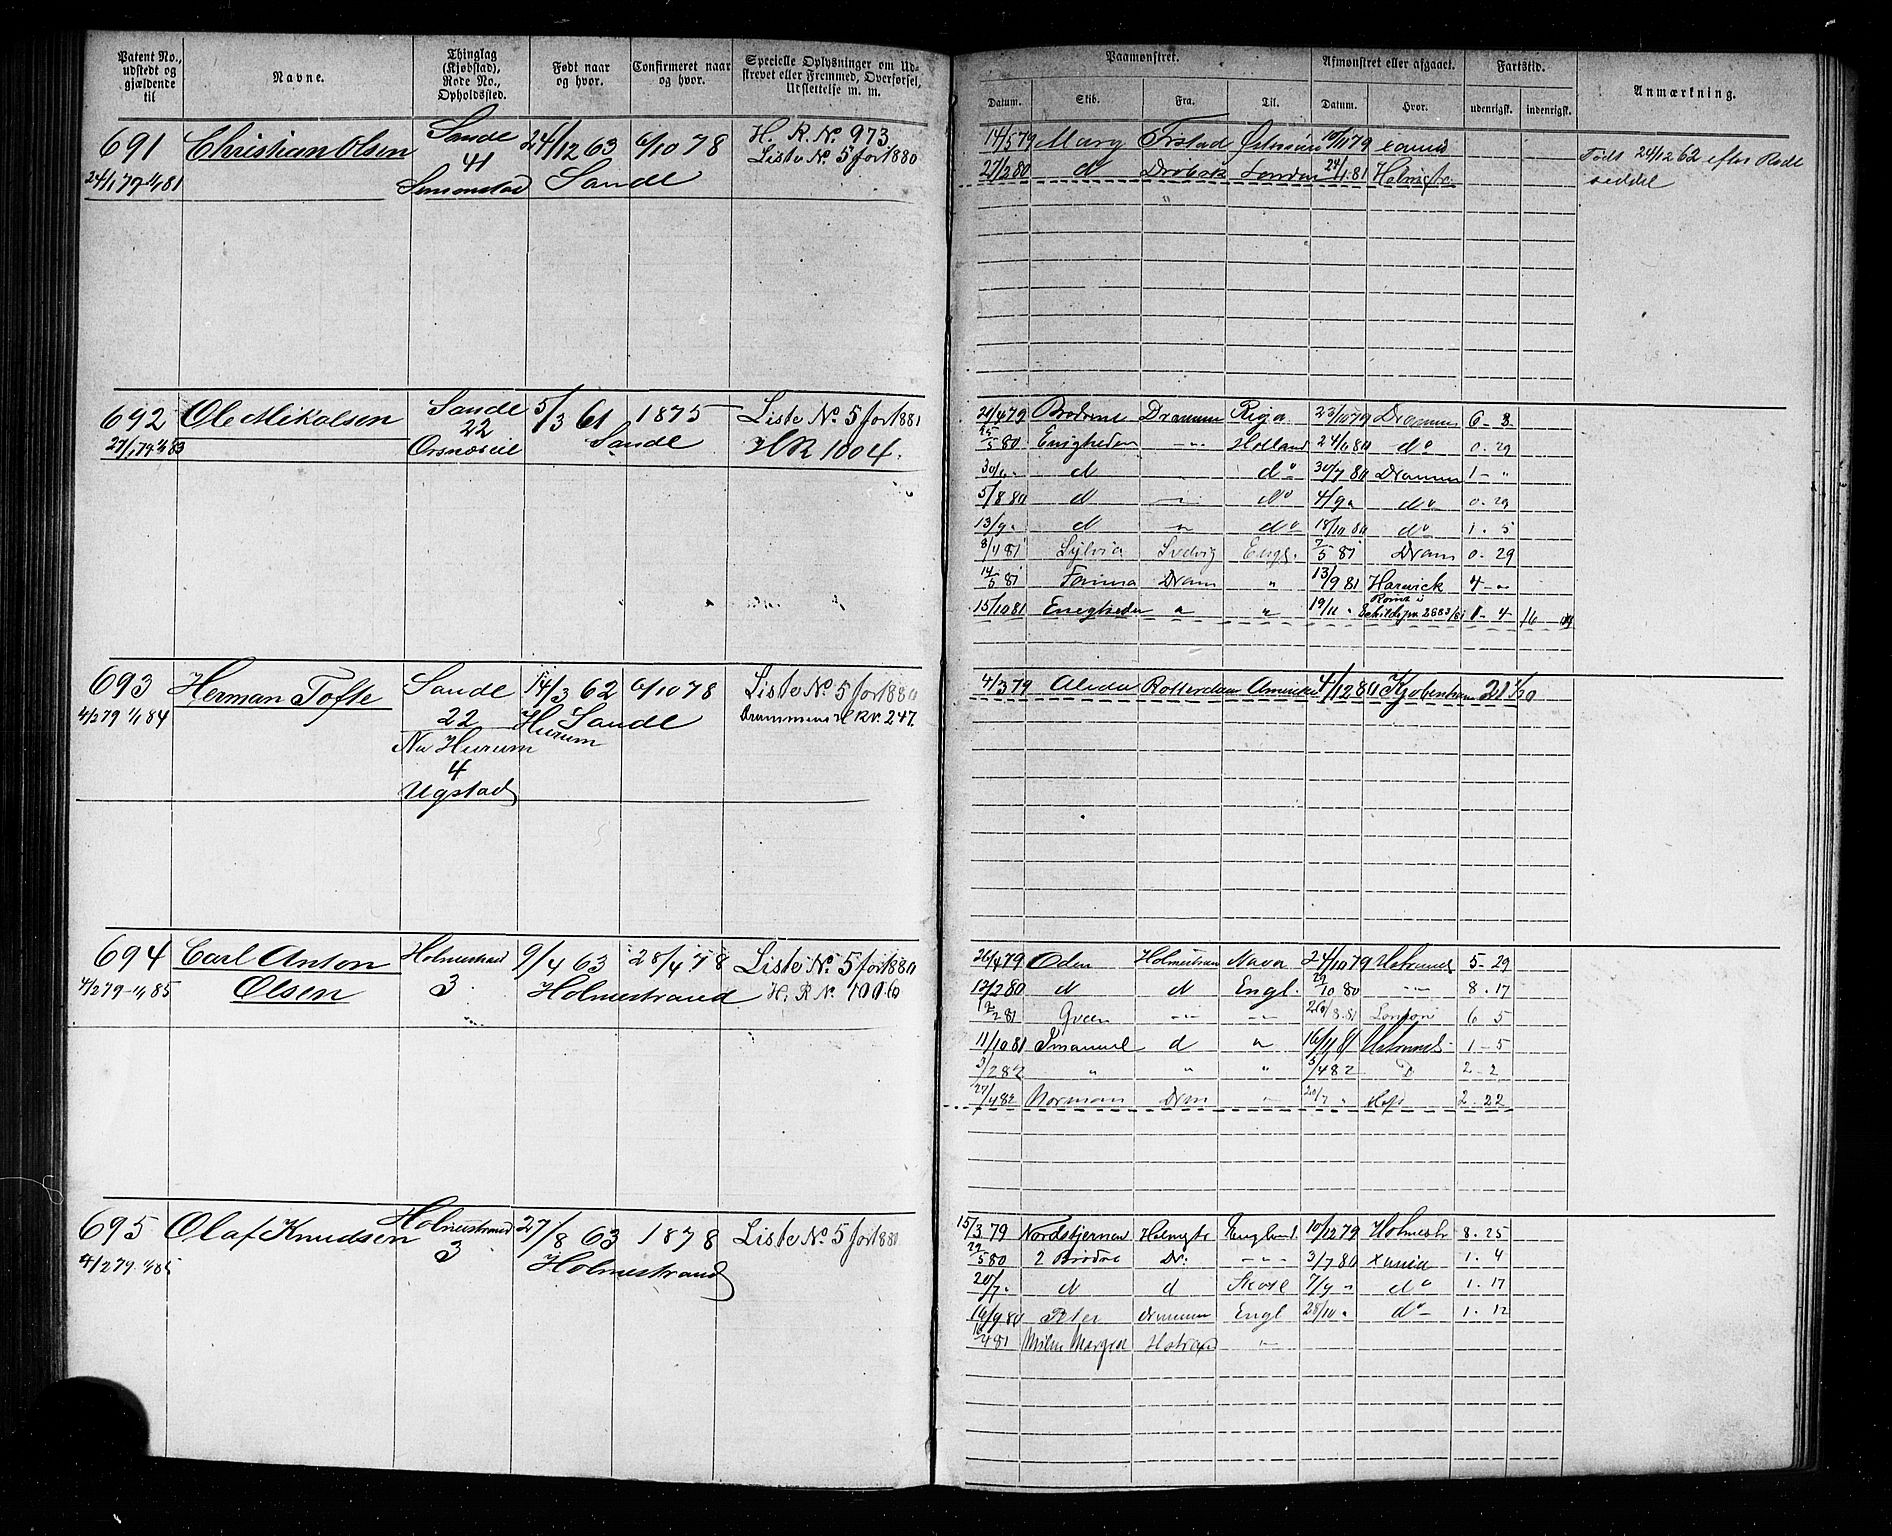 Patent No., udstedt og gjældende til
Navne.
Thinglag (Kjøbstad), Rode No., Opholdssted.
Født naar og hvor.
Confirmeret naar og hvor.
Specielle Oplysninger om Udskrevet eller Fremmed, Overførsel, Udslettelse m. m.
Paamønstret.
Afmønstret eller afgaaet.
Fartstid.
Anmærkning.
Datum. Skib. Fra. Til. Datum. Hvor. udenrigsk. indenrigsk.
691 Christian Olsen Sande 24/12 63 6/10 78 H. R. No. 973
41 Liste No. 5 for 1880
24/1 79 1/1 81 Sande
14/5 79 Mary 10/11 79
27/2 80 d Drøbak London 24/1 81 Holmstr.
Født 24/12 62 efter Rode
seddel
692 Ole Mikalsen Sande 5/3 61 1875 Liste No. 5 for 1881
22 Sande
27/1 79 HR 1004.
24/4 79 Brødrene Drammen Riga 23/10 79 Drammen 6 - 3
25/5 80 Enigheden -"- Holland 24/6 80 do 0 - 29
30/6 " d do 30/7 80 Drammen 1 - "
5/8 80 d -"- do 4/9 " do 0 - 29
13/9 " d " do 18/10 80 do 1 - 5
8/4 81 Sylvia Svelvig Engl. 7/5 81 Dram 0 - 29
14/5 81 Dram " 13/9 81 Harwick 4 - "
15/10 81 Enigheden " " 19/11 " 2683/81 1 - 4 16
693 Herman Tofte Sande 14/3 62 6/10 78 Liste No. 5 for 1880
4/2 79 1/1 84 22 Sande Drammens RN. 247.
Hurum
Nu Hurum
4
Ugstad
4/3 79 Alida Rotterdam Amerika 4/12 80 Kjøbenhavn 21 1/20
694 Carl Anton Holmestrand 9/4 63 28/4 78 Liste No. 5 for 1880
Olsen 3 Holmestrand H. R. No. 1006
4/2 79 - 1/1 85
26/4 79 Oden Holmestrand 24/10 79 5 - 29
12/2 80 d d Engl. 29/10 80 -"- 8 - 17
12/2 81 Queen -"- -"- 26/8 81 London 6 5
11/10 81 Imanuel d " 16/11 81 1 - 5
3/2 82 " " " 5/4 82 D 2 - 2
27/4 82 Norman Drm " 20/7 " 2 - 22
695 Olaf Knudsen Holmestrand 27/8 63 1878 Liste No. 5 for 1880
4/2 79 1/1 85 3 Holmestrand
15/3 79 Nordstjernen Holmstr England 10/12 79 Holmestr 8 - 25
29/5 80 2 Brødre Dr: -"- 3/7 80 Xania 1 - 4
20/7 " d d 7/9 " do 1 - 17
16/9 80 Peter Drammen Engl 28/10 " do 1 - 12